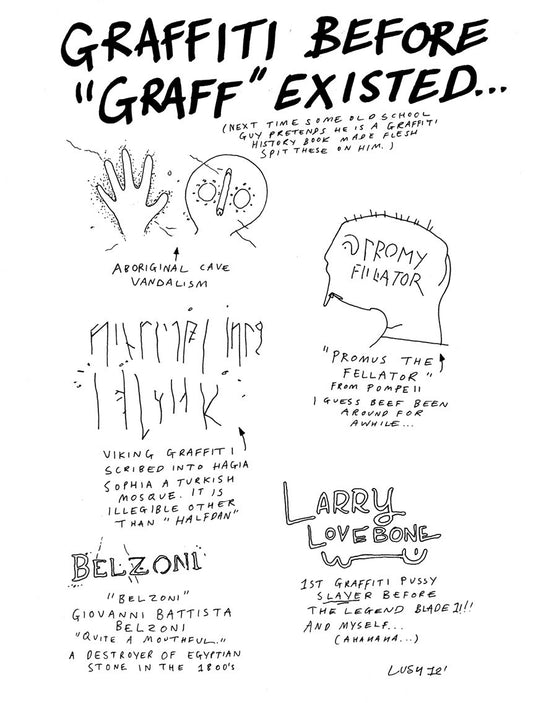 GRAFFITI BEFORE
"GRAFF" EXISTED...
(NEXT TIME SOME OLD SCHOOL
GUY PRETENDS HE IS A GRAFFITI
HISTORY BOOK MADE FLESH
SPIT THESE ON HIM.)
ABORIGINAL CAVE
VANDALISM
PROMY
FILLATOR
"PROMUS THE
FELLATOR"
FROM POMPEII
I GUESS BEEF BEEN
AROUND FOR
AWHILE...
VIKING GRAFFITI
SCRIBED INTO HAGIA
SOPHIA A TURKISH
MOSQUE. IT IS
ILLEGIBLE OTHER
THAN "HALFDAN"
LARRY
LOVEBONE
1ST GRAFFITI PUSSY
SLAYER BEFORE
THE LEGEND BLADE 1!!!
AND MYSELF...
(AHAHAHA...)
BELZONI
"BELZONI"
GIOVANNI BATTISTA
BELZONI
"QUITE A MOUTHFUL.."
A DESTROYER OF EGYPTIAN
STONE IN THE 1800's
LUSY 12'